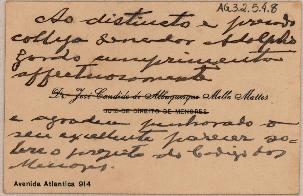 AG.3.2.5.9.8
Ao distincto e presado
collega Senador Adolpho
Gordo cumprimentos
affectuosamente
Dr. José Candido de Albuquerque Mello Mattos
JUIZ DE DIREITO DE MENORES
e agradece penhorado o
seu excellente parecer so-
bre o projecto do Codigo dos
Menores.
Avenida Atlantica 914